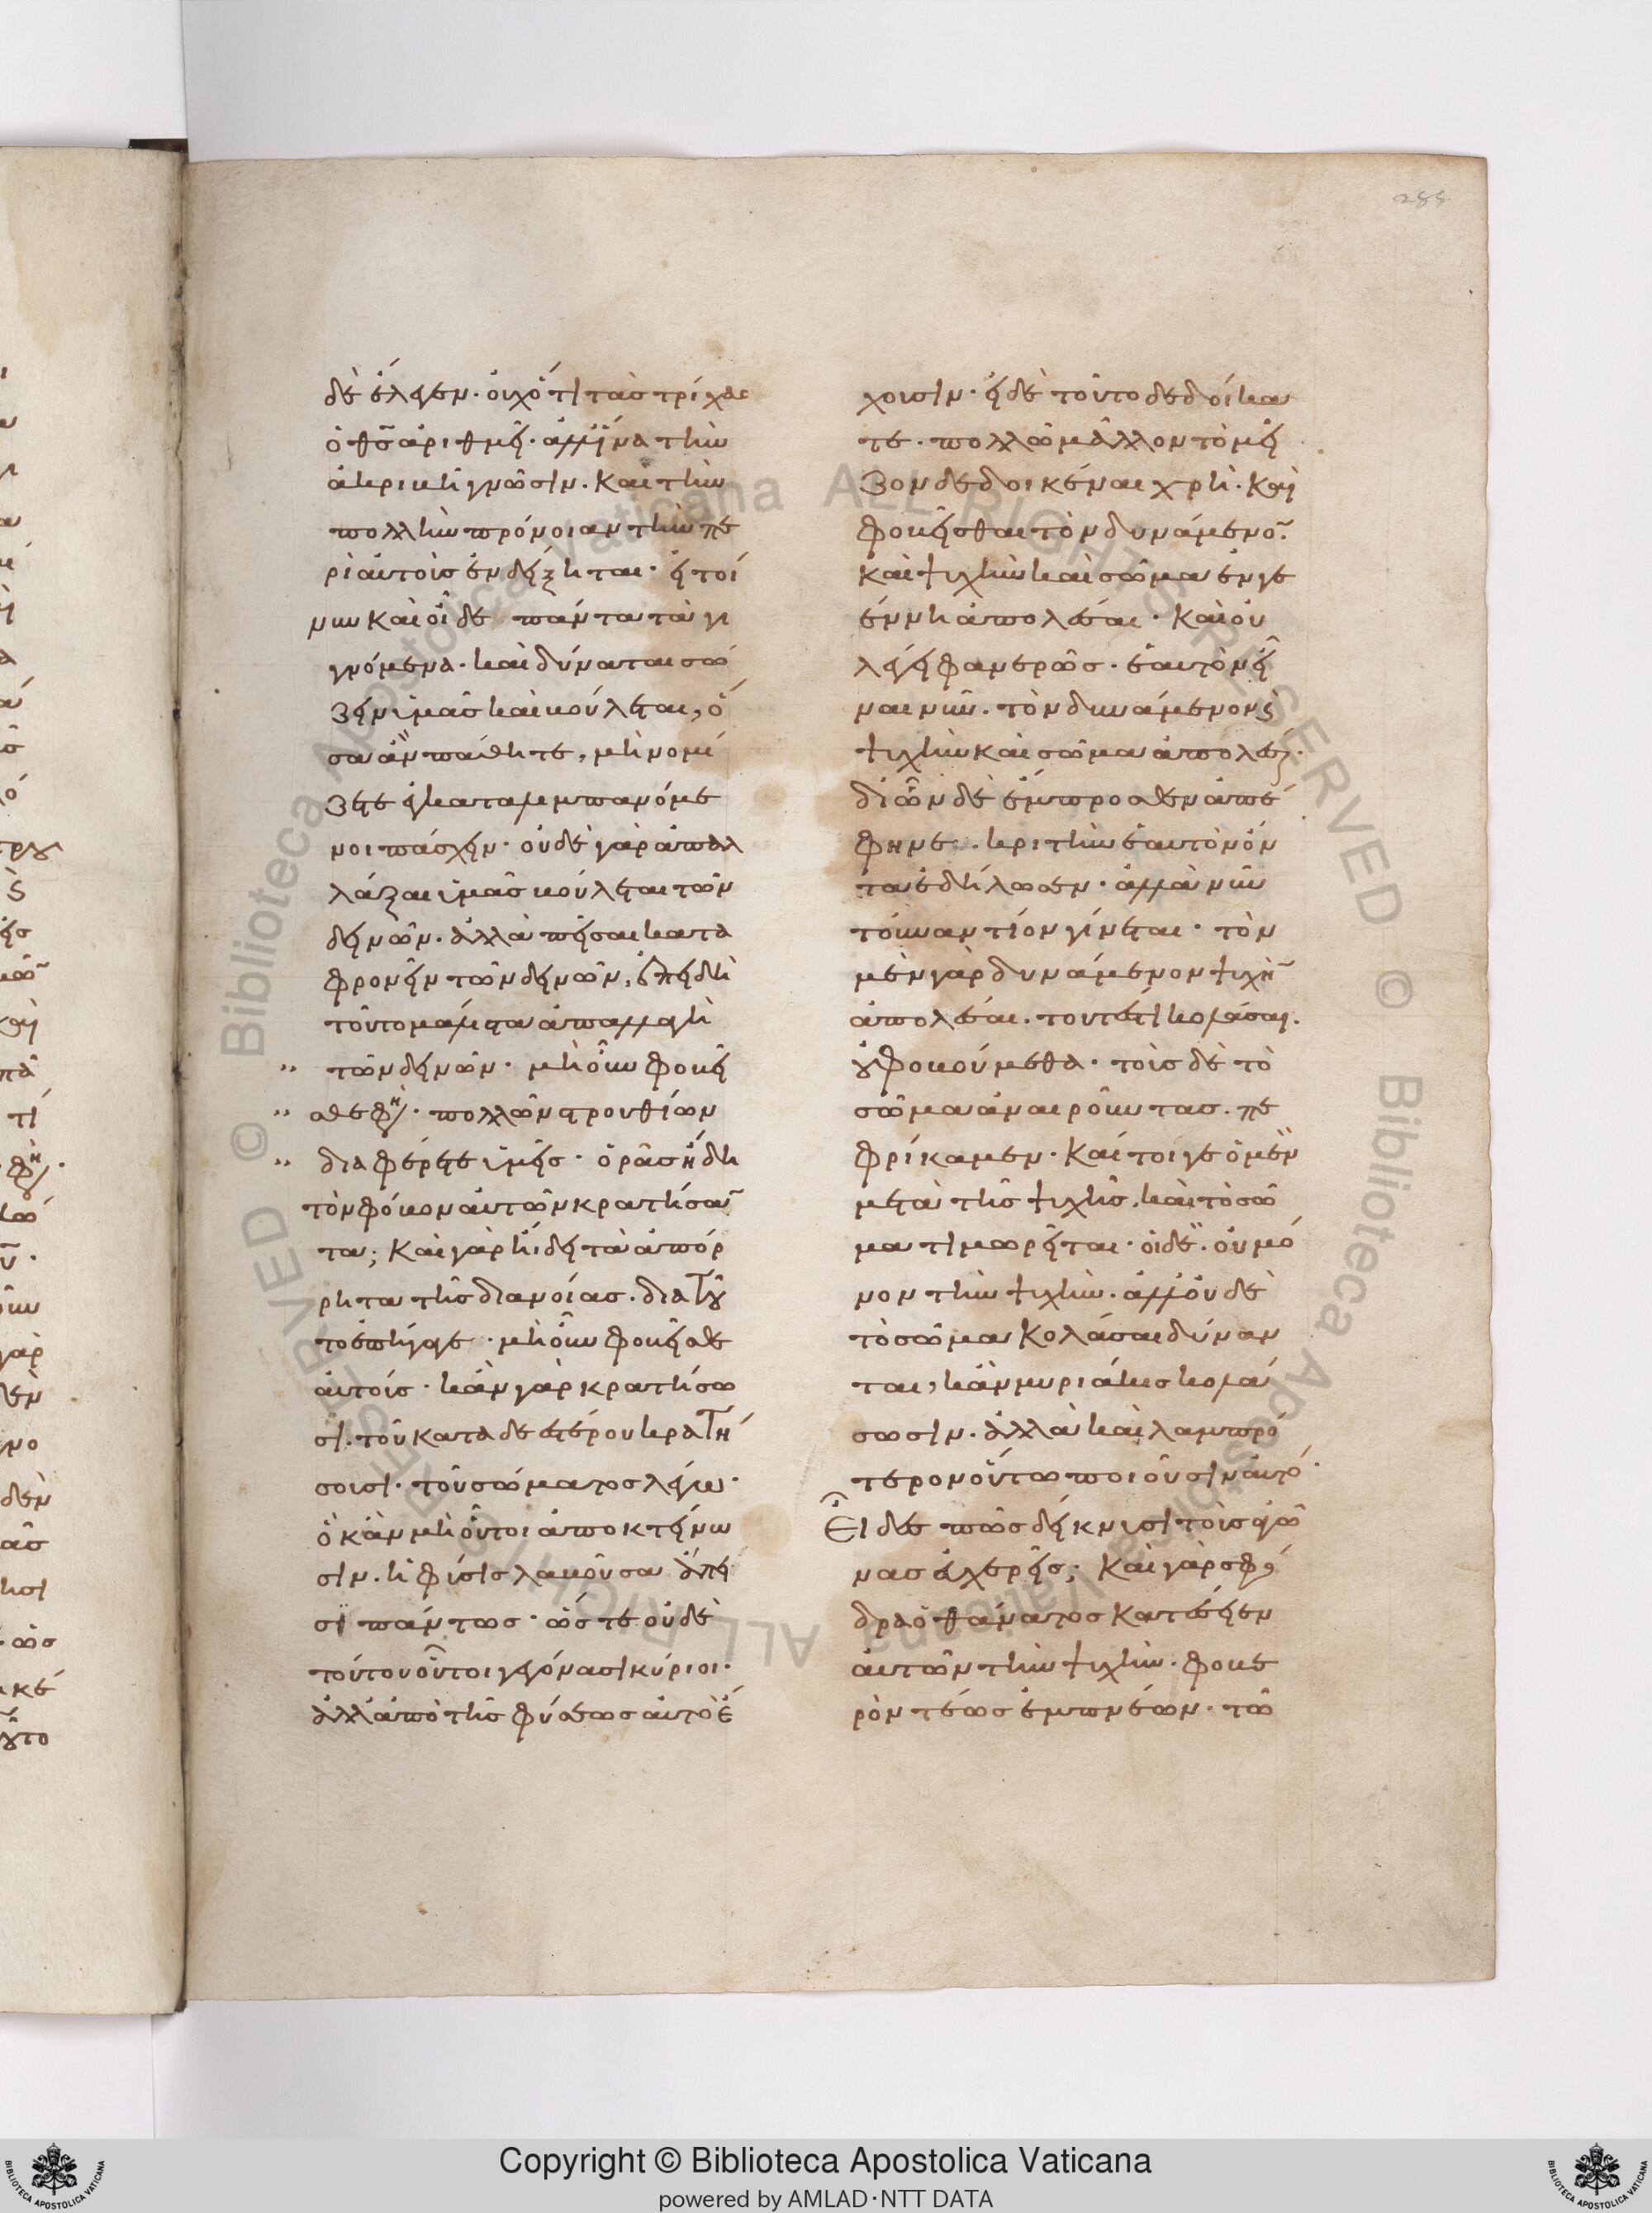 285
δὲ ἔλεγεν· οὐχ ὅτι τὰς τρίχας
ὁ θς ἀριθμεῖ· ἀλλ' ἵνα τὴν
ἀκριβῆ γνῶσιν. καὶ τὴν
πολλὴν πρόνοιαν τὴν πε
ρὶ αὐτοὺς ἐνδείξηται· εἰ τοί
νυν καὶ οἶδε πάντα τὰ γι
γνόμενα· καὶ δύναται σώ
ζειν ὑμᾶς καὶ βούλεται, ὅ
σα ἂν πάθητε, μὴ νομί
ζετε ἐγκαταλιμπανόμε
νοι πάσχειν· οὐδὲ γὰρ ἀπαλ
λάξαι ὑμᾶς βούλεται τῶν
δεινῶν. ἀλλὰ πεῖσαι κατα
φρονεῖν τῶν δεινῶν, ἐπειδὴ
τοῦτο μάλιστα ἀπαλλαγὴ
τῶν δεινῶν· μὴ οὖν φοβεῖ
σθε φη· πολλῶν στρουθίων
διαφέρετε ὑμεῖς· ὁρᾶς ἤδη
τὸν φόβον αὐτῶν κρατήσαν
τα; καὶ γὰρ ἤδει τὰ ἀπόρ
ρητα τῆς διανοίας. διὰ τοῦ
το ἐπήγαγε· μὴ οὖν φοβεῖσθε
αὐτούς· κἂν γὰρ κρατήσω
σι. τοῦ καταδεεστέρου κρατή
σουσι· τοῦ σώματος λέγω·
ὃ κἂν μὴ οὗτοι ἀποκτείνω
σιν. ἡ φύσις λαβοῦσα ἄπει
σι πάντως· ὥστε οὐδὲ
τούτου οὗτοι γεγόνασι κύριοι·
ἀλλ' ἀπὸ τῆς φύσεως αὐτὸ ἔ
χουσιν· εἰ δὲ τοῦτο δεδοίκα
τε. πολλῷ μᾶλλον τὸ μεῖ
ζον δεδοικέναι χρή. καὶ
φοβεῖσθαι τὸν δυνάμενον
καὶ ψυχὴν καὶ σῶμα ἐν γε
έννῃ ἀπολέσαι· καὶ οὐ
λέγει φανερῶς. ἑαυτὸν εἶ
ναι νῦν. τὸν δυνάμενον καὶ
ψυχὴν καὶ σῶμα ἀπολέσαι·
δι' ὧν δὲ ἔμπροσθεν ἀπέ
φηνε. κριτὴν ἑαυτὸν ὄν
τα ἐδήλωσεν· ἀλλὰ νῦν
τοὐναντίον γίνεται· τὸν
μὲν γὰρ δυνάμενον ψυχὴν
ἀπολέσαι. τουτέστι κολάσαι.
οὐ φοβούμεθα· τοὺς δὲ τὸ
σῶμα ἀναιροῦντας. πε
φρίκαμεν· καί τοι γε ὁ μὲν
μετὰ τῆς ψυχῆς. καὶ τὸ σῶ
μα τιμωρεῖται· οἱ δὲ. οὐ μό
νον τὴν ψυχὴν. ἀλλ' οὐδὲ
τὸ σῶμα κολάσαι δύναν
ται, κἂν μυριάκις κολά
σωσιν. ἀλλὰ καὶ λαμπρό
τερον οὕτω ποιοῦσιν αὐτό·
Εἶδες πῶς δείκνυσι τοὺς ἀγῶ
νας εὐχερεῖς; καὶ γὰρ σφό
δρα ὁ θάνατος κατέσειεν
αὐτῶν τὴν ψυχὴν. φοβε
ρὸν τέως ἐμπνέων· τῷ